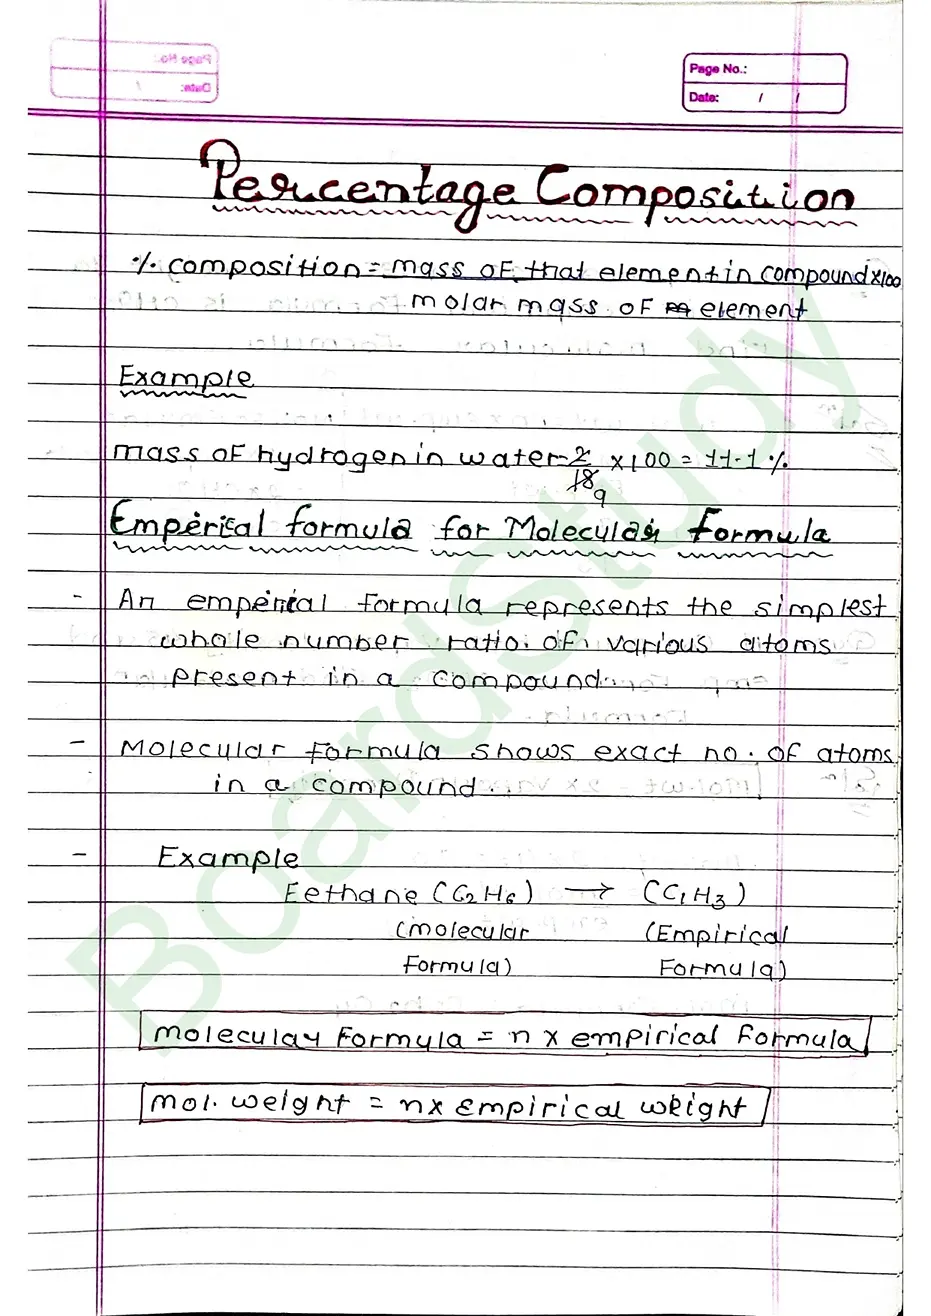 Page No.:
Date: / /
Page No.:
Date: / /
Percentage Composition
% composition = mass of that element in compound x100
molar mass of element
Example
mass of hydrogen in water = 2/18 x 100 = 11.1 %
9
Emperical formula for Molecular formula
- An emperical formula represents the simplest
whole number ratio of various atoms
present in a compound.
- Molecular formula shows exact no. of atoms
in a compound.
- Example
Eethane (C2H6) → (C1H3)
(molecular (Empirical
Formula) Formula)
molecular Formula = n x empirical Formula
mol. weight = n x Empirical weight
BoardStudy